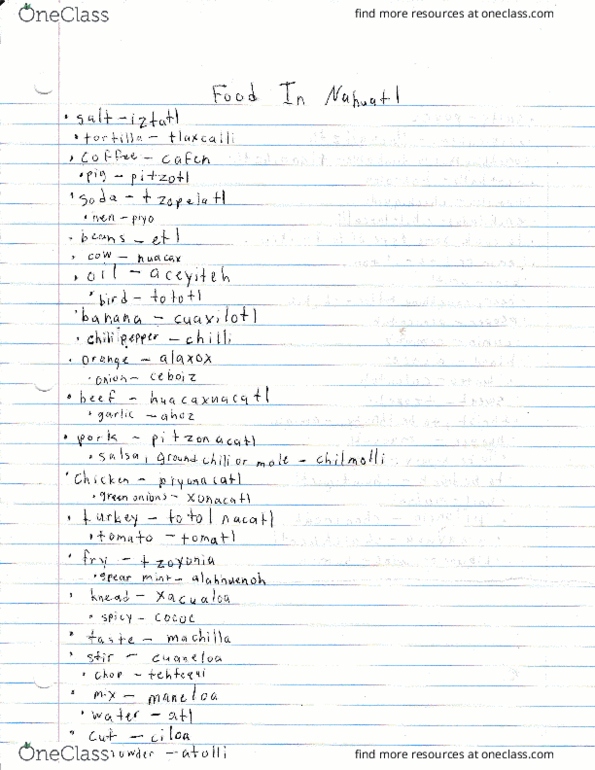 OneClass
find more resources at oneclass.com
Food In Nahuatl
• salt – iztatl
• tortilla – tlaxcalli
• coffee – cafen
• pig – pitzotl
• soda – tzopelatl
• hen – piyo
• beans – etl
• cow – huacax
• oil – aceyiteh
• bird – tototl
• banana – cuaxilotl
• chili pepper – chilli
• orange – alaxox
• onion – ceboiz
• beef – huacaxnacatl
• garlic – ahoz
• pork – pitzonacatl
• salsa, ground chili or mole – chilmolli
• Chicken – piyunacatl
• green onions – xonacatl
• turkey – totolnacatl
• tomato – tomatl
• fry – tzoyonia
• spear mint – alahuenoh
• knead – xacualoa
• spicy – cococ
• taste – machilia
• stir – cuaneloa
• chop – tehtequi
• mix – maneloa
• water – atl
• cut – ciloa
powder – atolli
OneClass
find more resources at oneclass.com